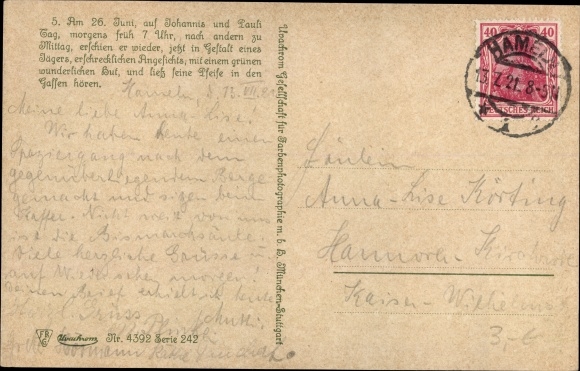 5. Am 26. Juni, auf Johannis und Pauli
Tag, morgens früh 7 Uhr, nach andern zu
Mittag, erschien er wieder, jetzt in Gestalt eines
Jägers, erschrecklichen Angesichts, mit einem grünen
wunderlichen Hut, und ließ seine Pfeife in den
Gassen hören.
Hameln, d. 12. VII. 21
Meine liebe Anna-Lise!
Wir haben heute einen
Spaziergang nach dem
gegenüberliegenden Berge
gemacht und sitzen beim
Kaffee. Nicht weit von uns
ist die Bismarcksäule.
Viele herzliche Grüsse u.
auf Wiedersehen morgen!
Deinen Brief erhielt ich heute
Uvachrom Gesellschaft für Farbenphotographie m. b. H. München-Stuttgart
Uvachrom Nr. 4392 Serie 242
40 40
DEUTSCHES REICH
HAMELN
13.7.21. 8-9V
Fräulein
Anna-Lise Körting
Hannover-
Kaiser-Wilhelm